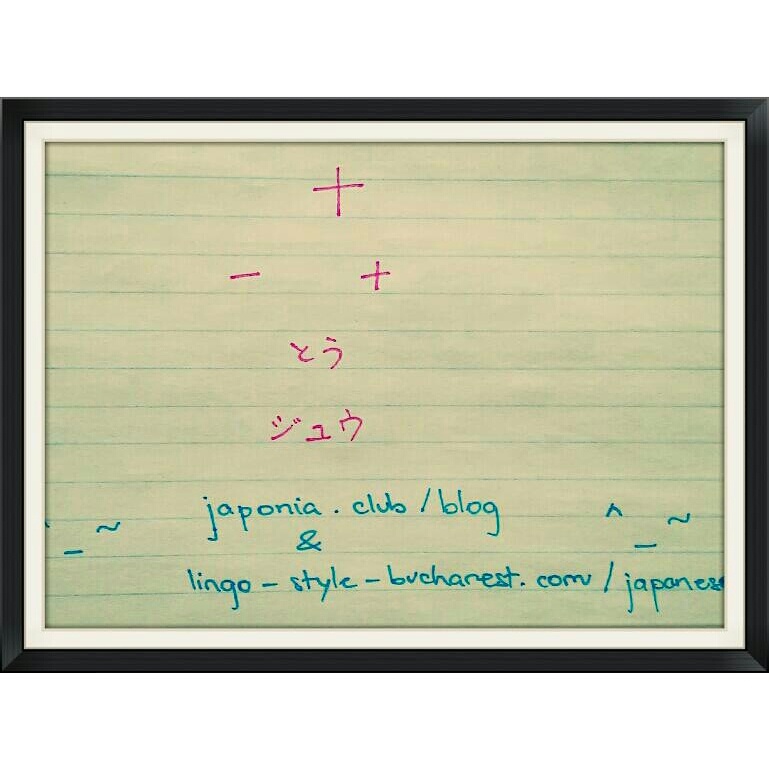 十
一 十
とう
ジュウ
japonia.club/blog
^_~ ^_~
&
lingo-style-bucharest.com/japanes